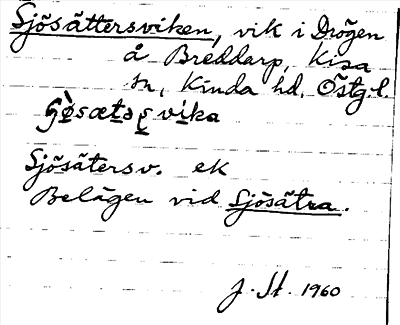 Sjösättersviken, vik i Drögen
å Breddarp, Kisa
sn, Kinda hd, Östg.l.
vika
Sjösätersv. ek
Belägen vid Sjösätra.
J. St. 1960